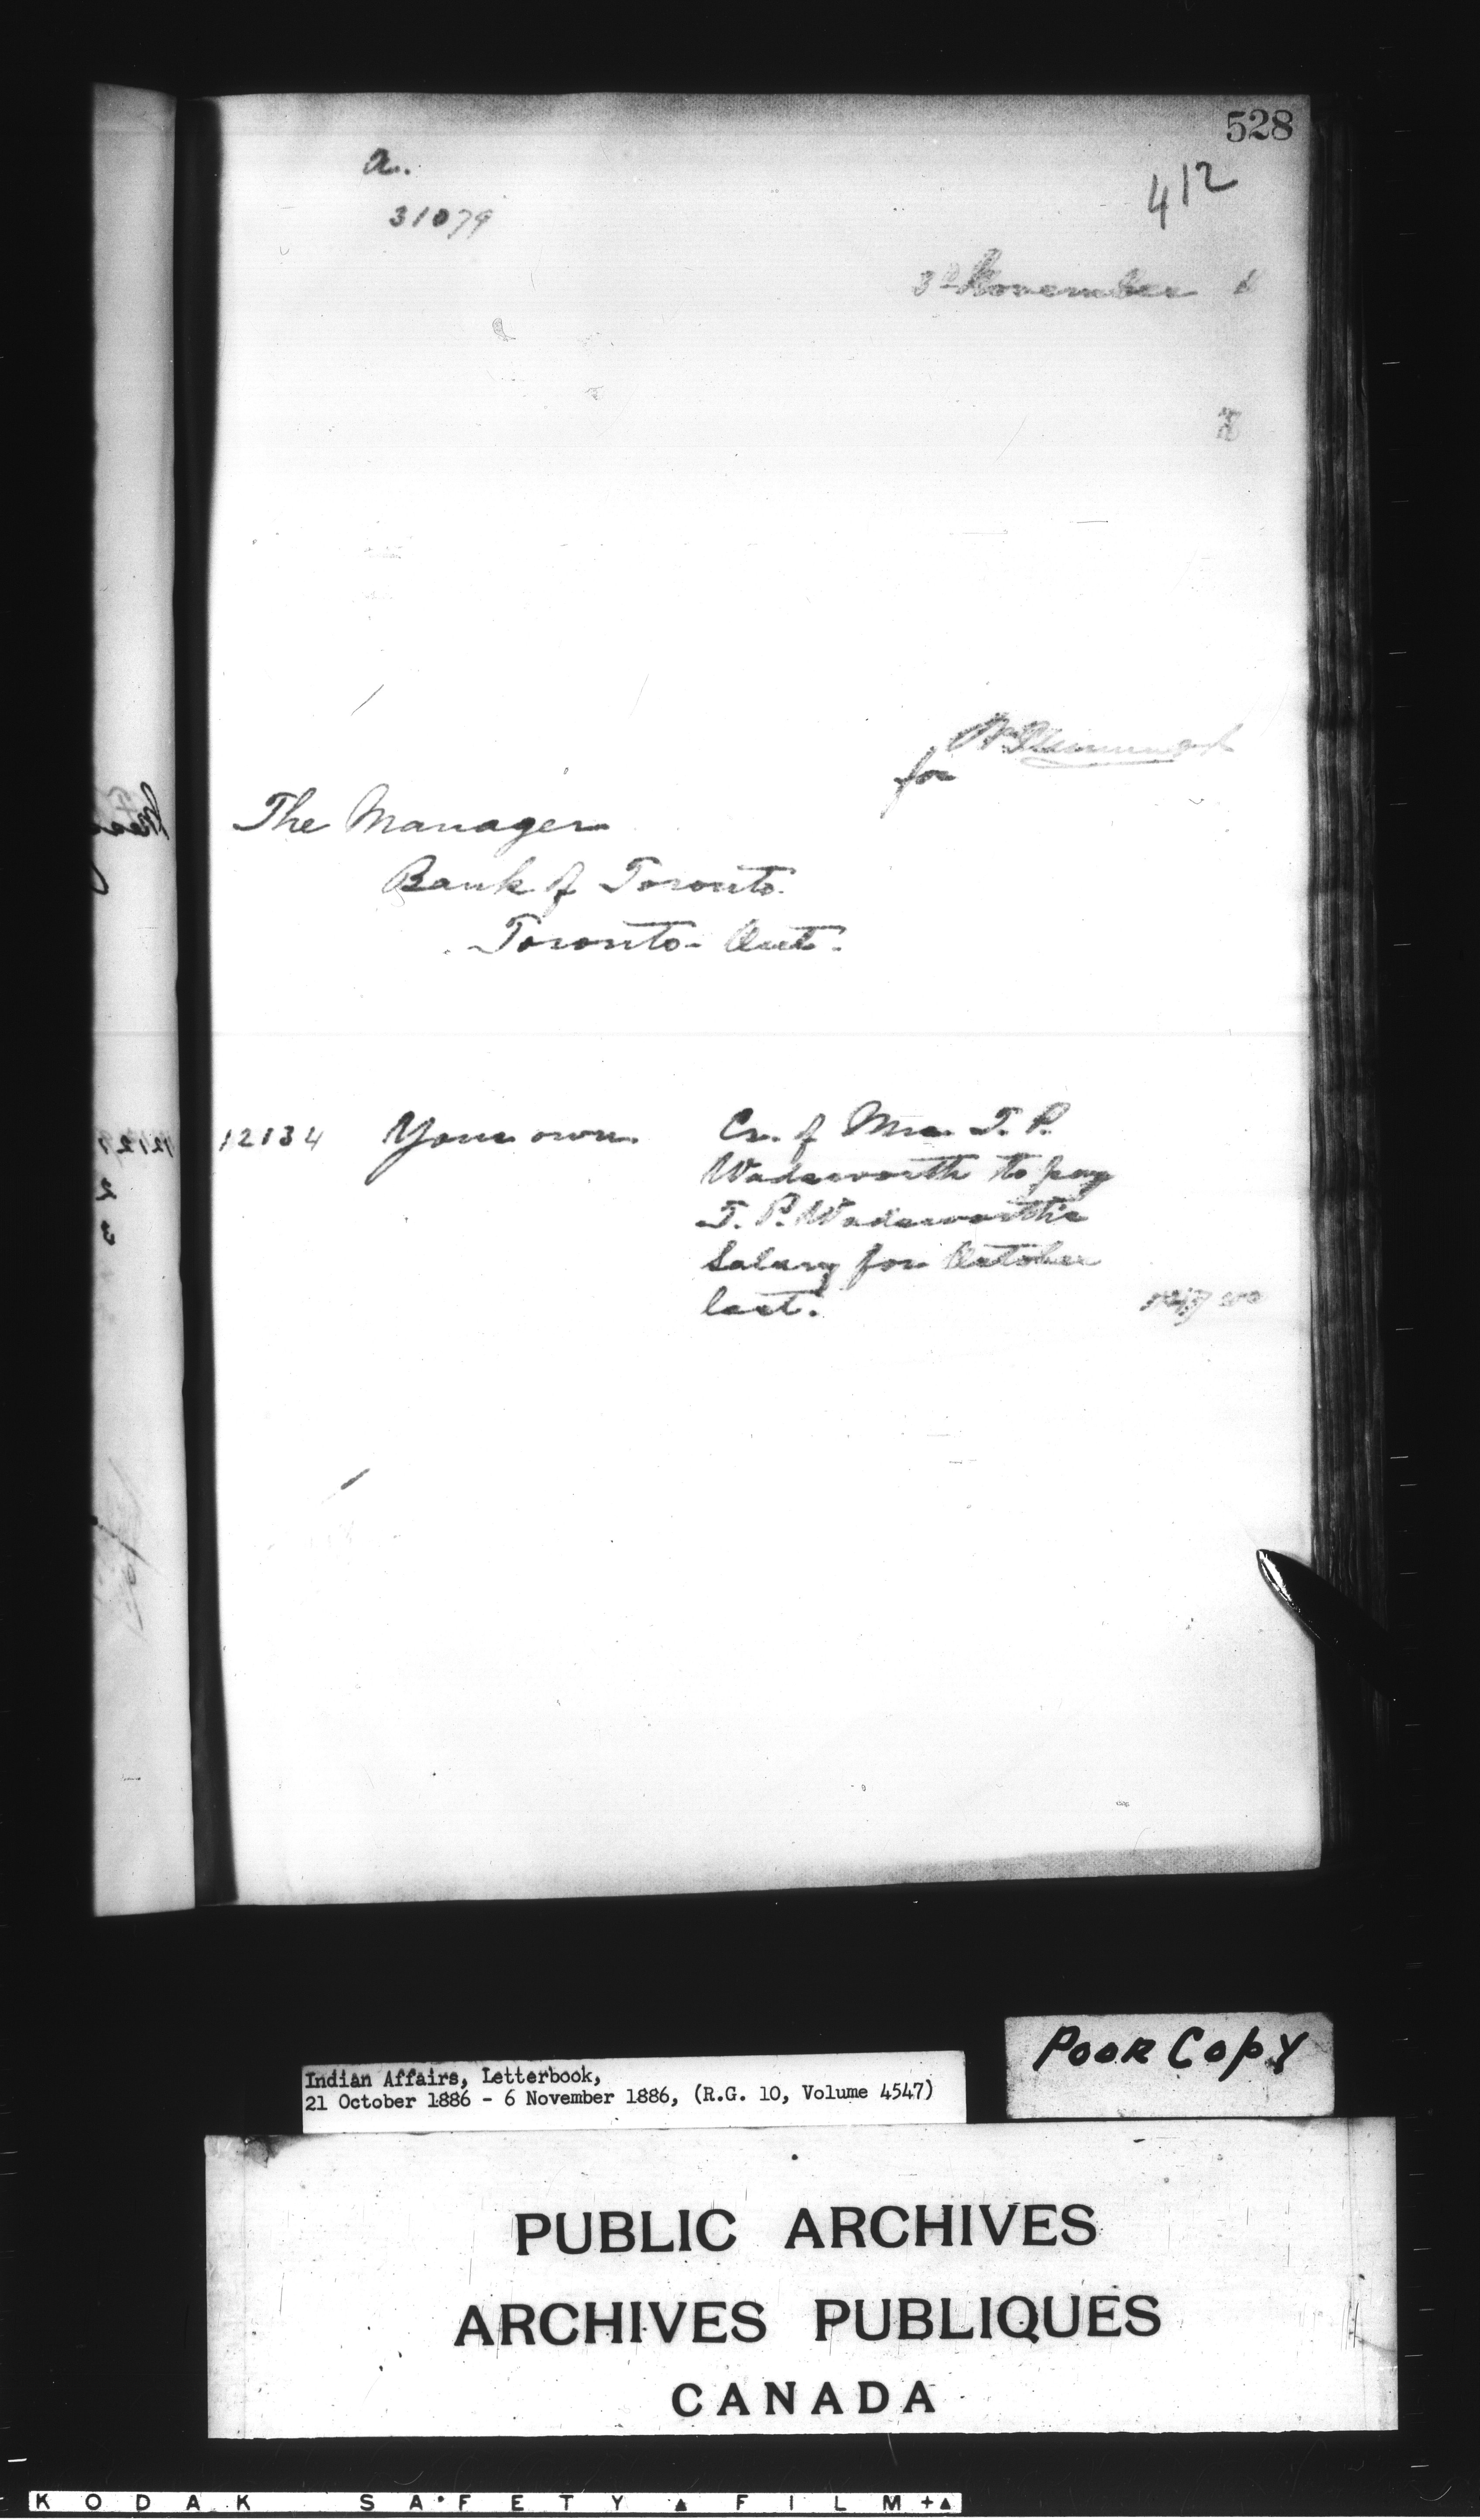 528
a.
412
31079
3rd November
for
The Manager
Bank of Toronto
Toronto Ont.
12134 Your own Cr. of Mrs. T. P.
Wadsworth to pay
T. P. Wadsworth's
Salary for October
last.
Poor Copy
Indian Affairs, Letterbook,
21 October 1886 - 6 November 1886, (R.G. 10, Volume 4547)
PUBLIC ARCHIVES
ARCHIVES PUBLIQUES
CANADA
KODAK SAFETY FILM